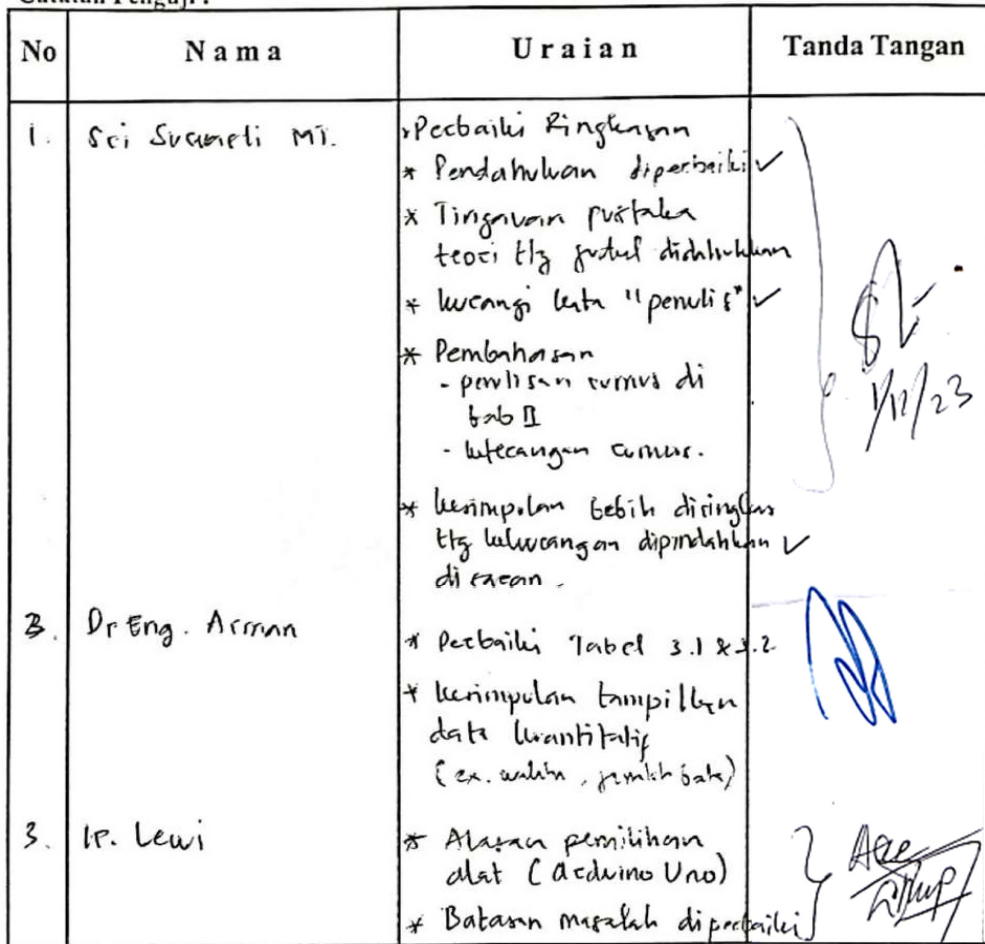 Catatan Penguji :
No Nama Uraian Tanda Tangan
1. Sri MT. Perbaiki Ringkasan
* Pendahuluan diperbaiki ✓
* Tinjauan pustaka
teori ttg judul didahulukan
* kurangi kata "penulis" ✓
* Pembahasan
- penulisan rumus di
bab II
- keterangan rumus.
1/12/23
* kesimpulan lebih diringkas
ttg kekurangan dipindahkan ✓
di saran.
2. Dr Eng. Arman
* Perbaiki Tabel 3.1 & 3.2
* kesimpulan tampilkan
data kuantitatif
(ex. waktu, jumlah bata)
3. Ir. Lewi * Alasan pemilihan
alat (Arduino Uno)
* Batasan masalah diperbaiki